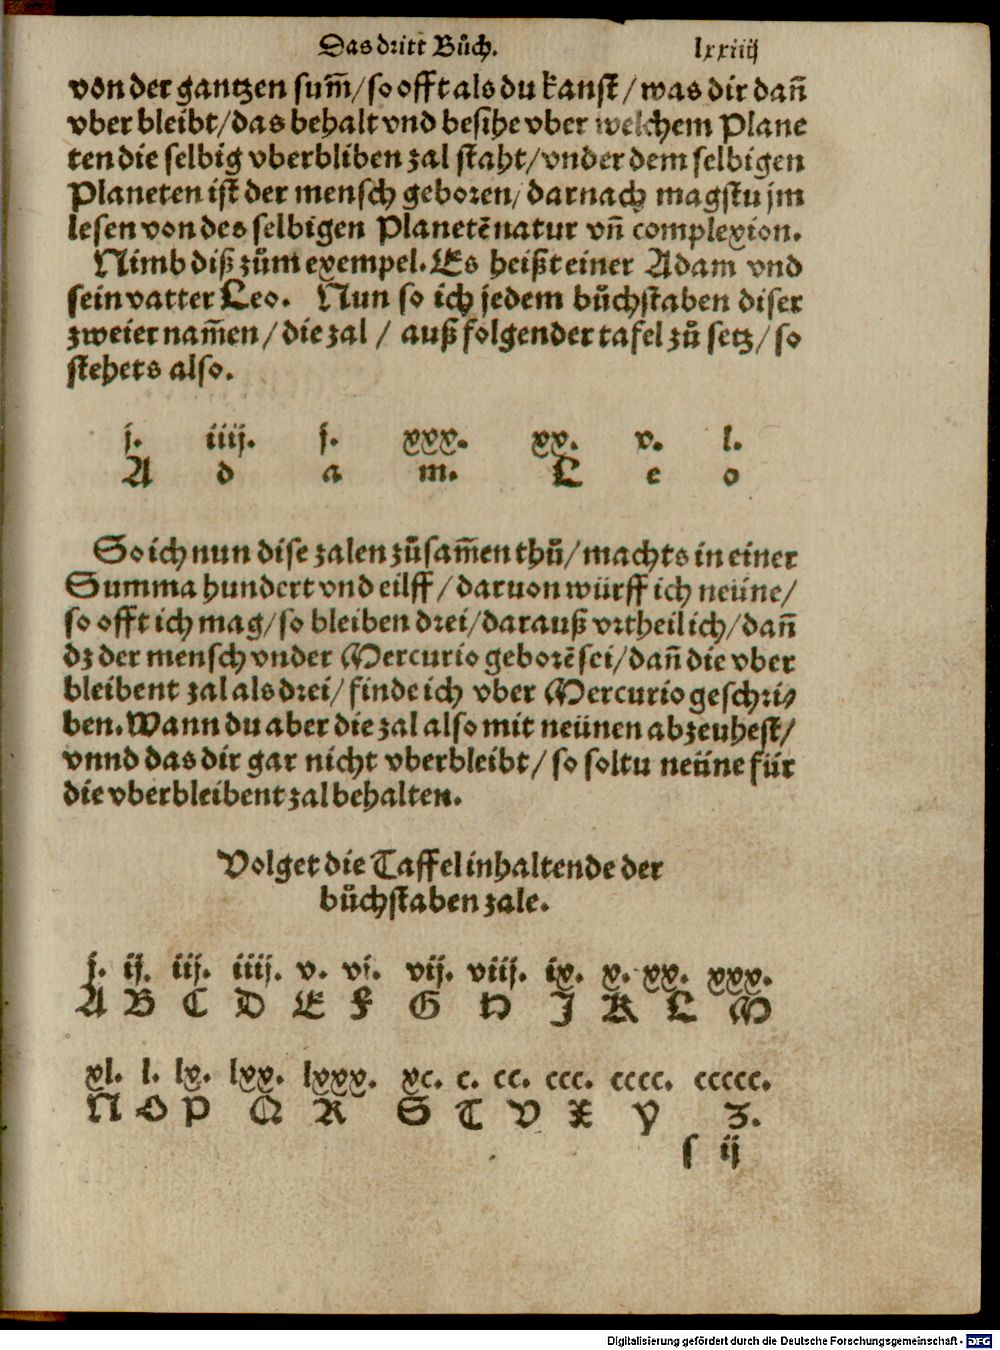 Das dritt Bůch. lxxiiij
von der gantzen sum̃/ so offt als du kanst/ was dir dañ
vber bleibt/ das behalt vnd besihe vber welchem Plane
ten die selbig vberbliben zal staht/ vnder dem selbigen
Planeten ist der mensch geboren/ darnach magstu jm
lesen von des selbigen Planetẽ natur vñ complexion.
Nimb diß zům exempel. Es heißt einer Adam vnd
sein vatter Leo. Nun so ich jedem bůchstaben diser
zweier nam̃en/ die zal / auß folgender tafel zů setz/ so
stehets also.
j. iiij. j. xxx. xx. v. l.
A d a m. L e o
So ich nun dise zalen zůsam̃en thů/ machts in einer
Summa hundert vnd eilff/ daruon würff ich neüne/
so offt ich mag/ so bleiben drei/ darauß vrtheil ich/ dañ
dz der mensch vnder Mercurio geborẽ sei/ dañ die vber
bleibent zal als drei/ finde ich vber Mercurio geschri⸗
ben. Wann du aber die zal also mit neünen abzeuhest/
vnnd das dir gar nicht vberbleibt/ so soltu neüne für
die vberbleibent zal behalten.
Volget die Taffel inhaltende der
bůchstaben zale.
j. ij. iij. iiij. v. vj. vij. viij. ix. x. xx. xxx.
A B C D E F G H J K L M
xl. l. lx. lxx. lxxx. xc. c. cc. ccc. cccc. ccccc.
N O P Q R S T V X Y Z.
s ij
Digitalisierung gefördert durch die Deutsche Forschungsgemeinschaft - DFG